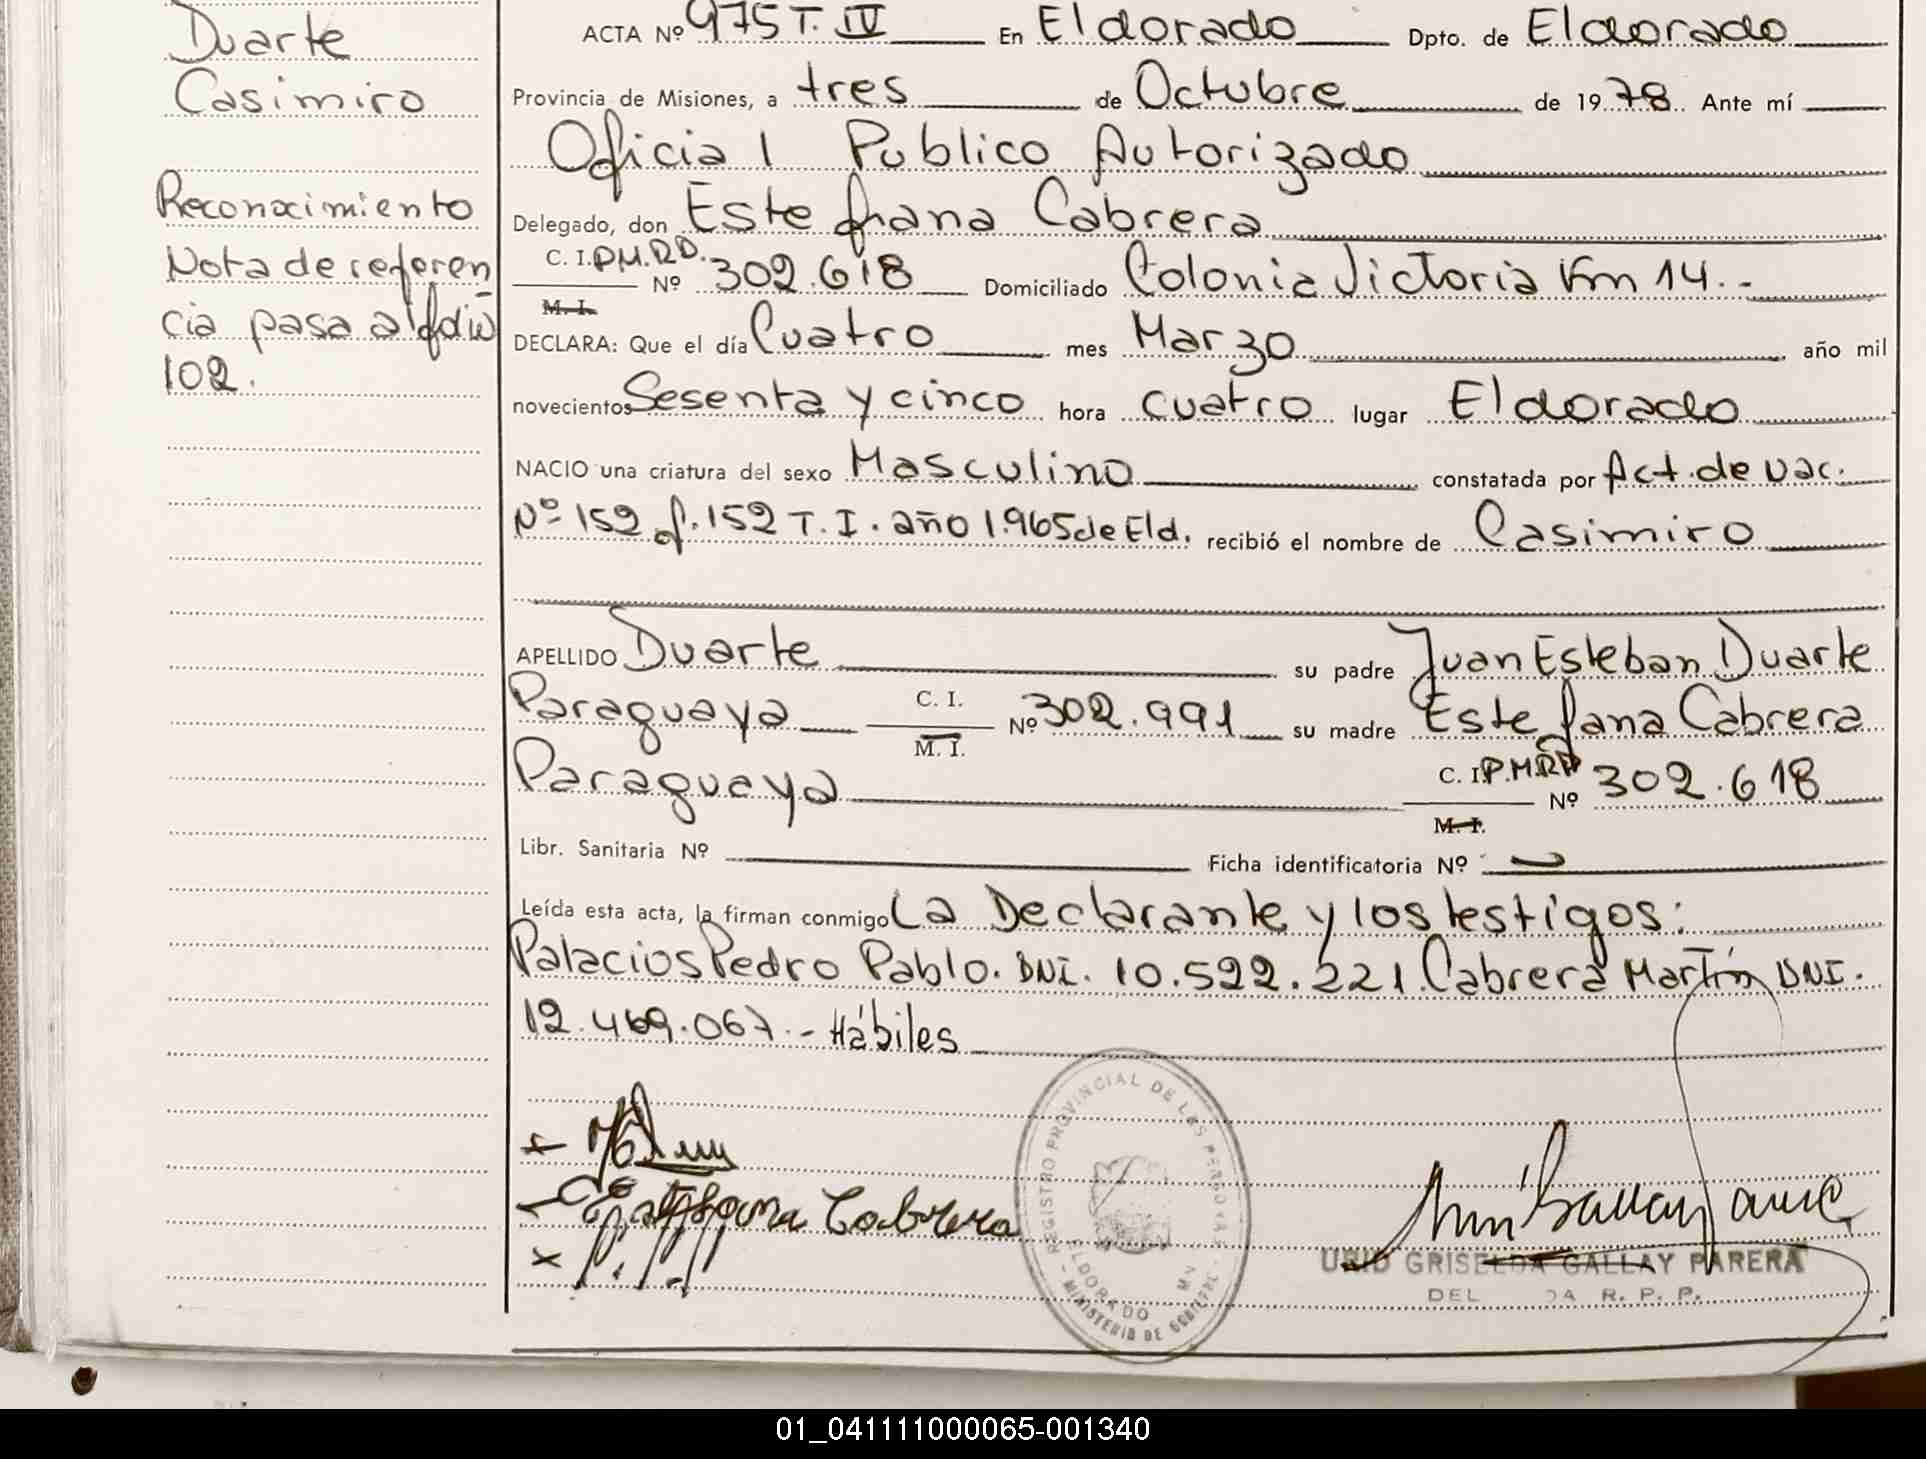 Duarte
Casimiro
Reconocimiento
Nota de referen
cia pasa al folio
102.
ACTA Nº 975 T. IV En Eldorado Dpto. de Eldorado
Provincia de Misiones, a tres de Octubre de 1978. Ante mí
Oficial Publico Autorizado
Delegado, don Estefana Cabrera
C. I. P.M.R.D. Nº 302.618 Domiciliado Colonia Victoria Km 14.-
M. I.
DECLARA: Que el día Cuatro mes Marzo año mil
novecientos Sesenta y cinco hora cuatro lugar Eldorado
NACIO una criatura del sexo Masculino constatada por Act. de nac.
Nº 152 f. 152 T. I. año 1.965 de Eld. recibió el nombre de Casimiro
APELLIDO Duarte su padre Juan Esteban Duarte
Paraguaya C. I. Nº 302.991 su madre Estefana Cabrera
M. I.
Paraguaya C. I. P.M.R.D Nº 302.618
M. I.
Libr. Sanitaria Nº Ficha identificatoria Nº
Leída esta acta, la firman conmigo La Declarante y los testigos:
Palacios Pedro Pablo. DNI. 10.522.221 Cabrera Martín DNI.
12.469.067.- Hábiles
Estefana Cabrera
REGISTRO PROVINCIAL DE LAS PERSONAS
ELDORADO MN
MINISTERIO DE GOBIERNO
GRISELDA GALLAY PARERA
DEL DA R. P. P.
01_041111000065-001340